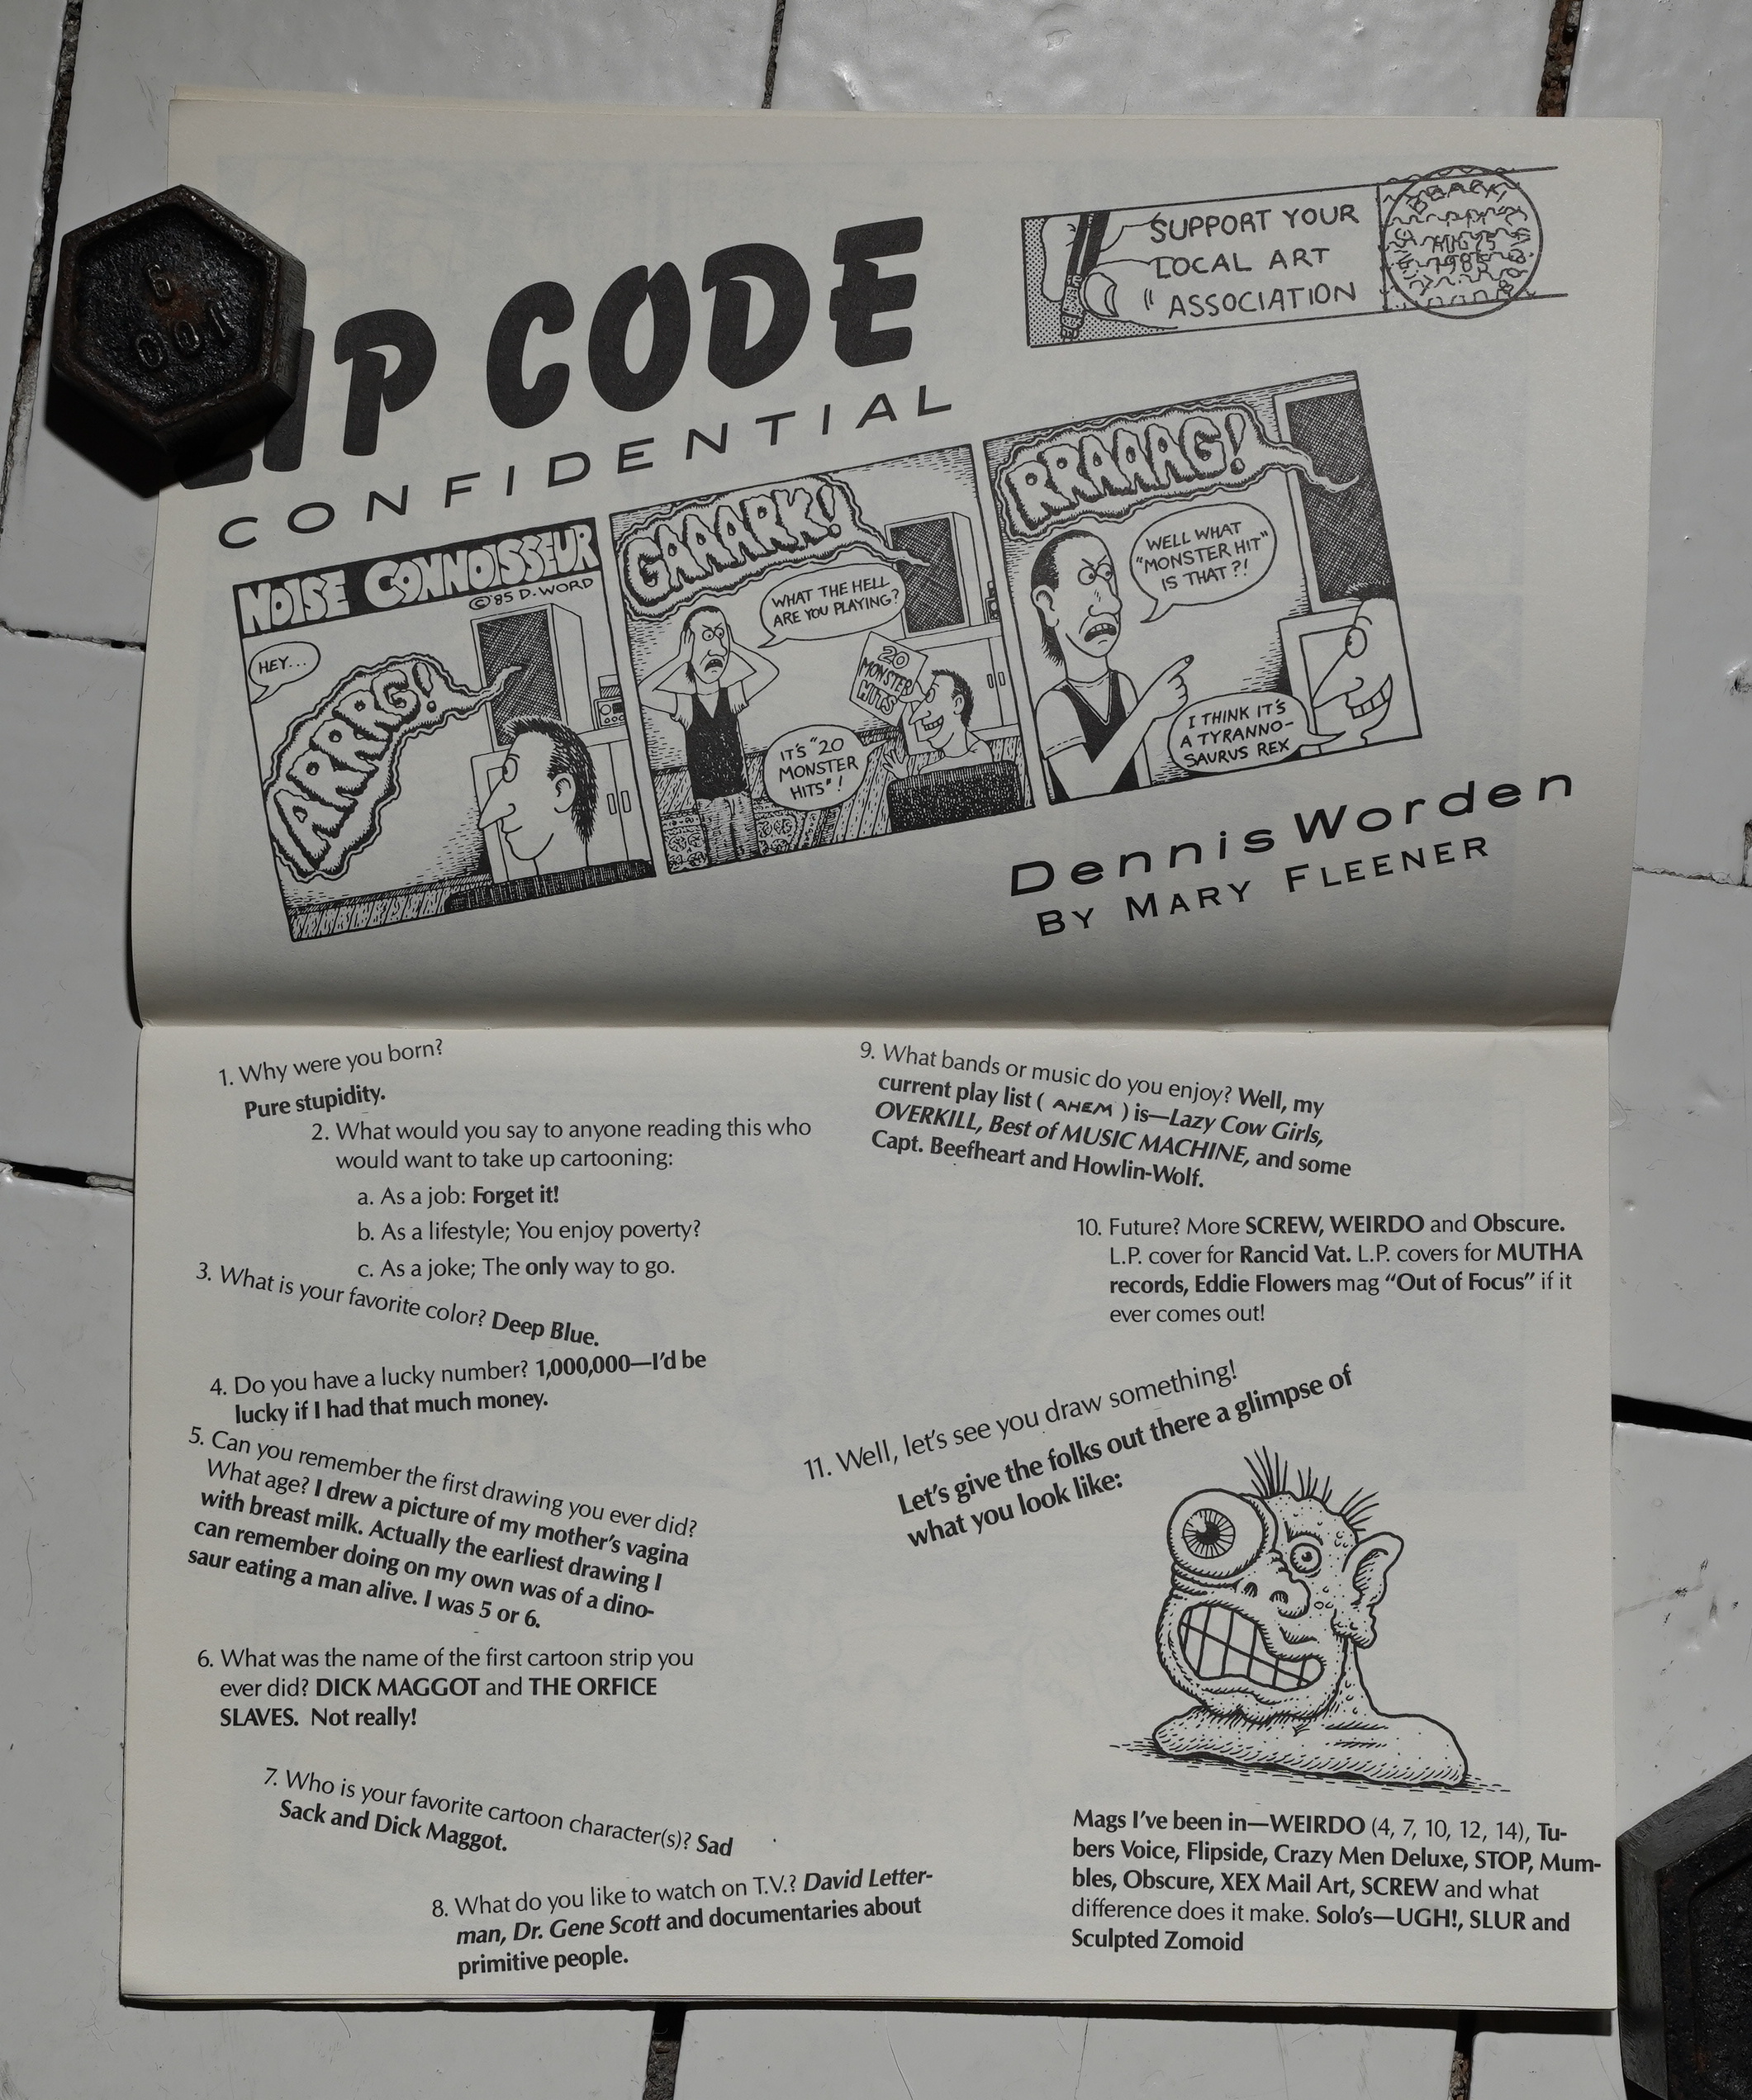 IP CODE
CONFIDENTIAL
SUPPORT YOUR
LOCAL ART
ASSOCIATION
1985
NOISE CONNOISSEUR
©'85 D. WORD
HEY...
ARRRG!
GAAARK!
WHAT THE HELL
ARE YOU PLAYING?
20
MONSTER
HITS
IT'S "20
MONSTER
HITS"!
RRAAAG!
WELL WHAT
"MONSTER HIT"
IS THAT?!
I THINK IT'S
A TYRANNO-
SAURUS REX
Dennis Worden
BY MARY FLEENER
1. Why were you born?
Pure stupidity.
2. What would you say to anyone reading this who
would want to take up cartooning:
a. As a job: Forget it!
b. As a lifestyle; You enjoy poverty?
c. As a joke; The only way to go.
3. What is your favorite color? Deep Blue.
4. Do you have a lucky number? 1,000,000—I'd be
lucky if I had that much money.
5. Can you remember the first drawing you ever did?
What age? I drew a picture of my mother's vagina
with breast milk. Actually the earliest drawing I
can remember doing on my own was of a dino-
saur eating a man alive. I was 5 or 6.
6. What was the name of the first cartoon strip you
ever did? DICK MAGGOT and THE ORFICE
SLAVES. Not really!
7. Who is your favorite cartoon character(s)? Sad
Sack and Dick Maggot.
8. What do you like to watch on T.V.? David Letter-
man, Dr. Gene Scott and documentaries about
primitive people.
9. What bands or music do you enjoy? Well, my
current play list ( AHEM ) is—Lazy Cow Girls,
OVERKILL, Best of MUSIC MACHINE, and some
Capt. Beefheart and Howlin-Wolf.
10. Future? More SCREW, WEIRDO and Obscure.
L.P. cover for Rancid Vat. L.P. covers for MUTHA
records, Eddie Flowers mag “Out of Focus” if it
ever comes out!
11. Well, let's see you draw something!
Let's give the folks out there a glimpse of
what you look like:
Mags I've been in—WEIRDO (4, 7, 10, 12, 14), Tu-
bers Voice, Flipside, Crazy Men Deluxe, STOP, Mum-
bles, Obscure, XEX Mail Art, SCREW and what
difference does it make. Solo's—UGH!, SLUR and
Sculpted Zomoid